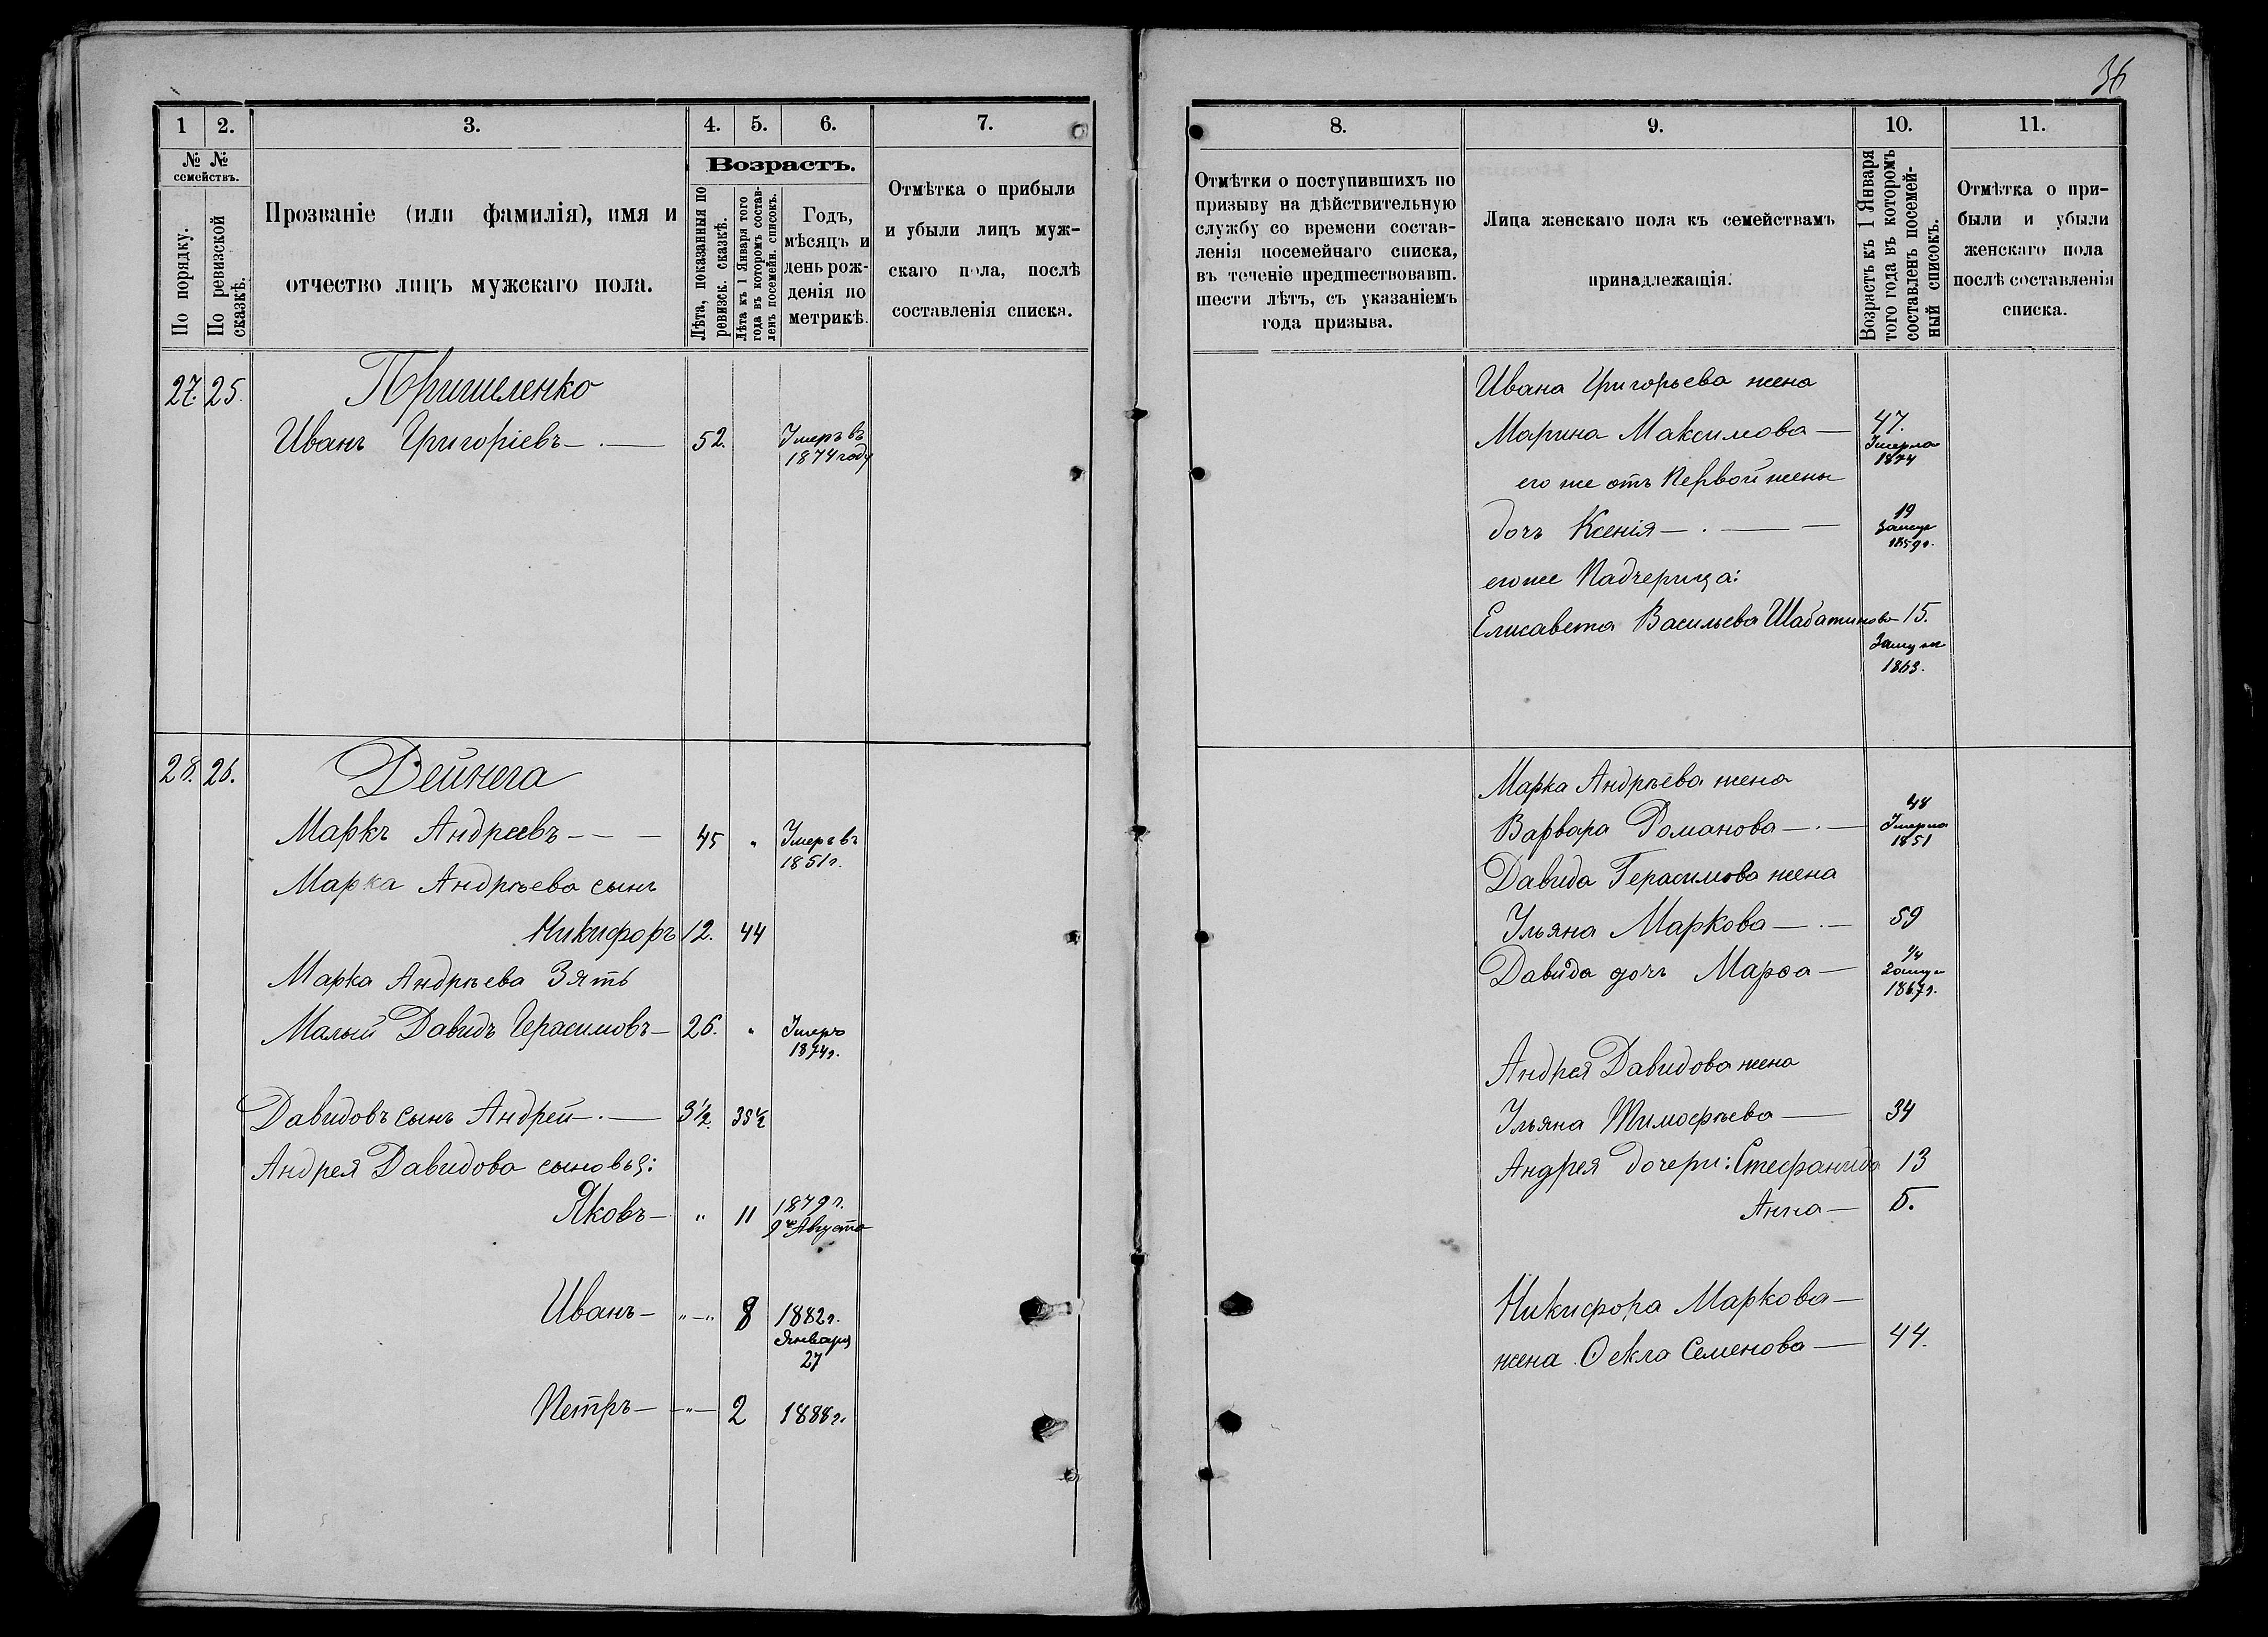 36
1 2. 3. 4. 5. 6. 7.
№ № семействъ.
По порядку.
По ревизской сказкѣ.
Прозваніе (или фамилія), имя и
отчество лицъ мужскаго пола.
Возрастъ.
Лѣта, показанныя по
ревизск. сказкѣ.
Лѣта къ 1 Января того
года въ которомъ состав-
ленъ посемейн. списокъ.
Годъ,
мѣсяцъ и
день рож-
денія по
метрикѣ.
Отмѣтка о прибыли
и убыли лицъ муж-
скаго пола, послѣ
составленія списка.
27. 25. Пришеленко
Иванъ Григоріевъ 52. Умеръ въ
1874 году
28. 26. Дейнега
Маркъ Андреевъ 45 " Умеръ въ
1851 г.
Марка Андрѣева сынъ
Никифоръ 12. 44
Марка Андрѣева Зять
Малый Давидъ Герасимовъ 26. " Умеръ
1874 г.
Давидовъ сынъ Андрей 3½. 35½
Андрея Давидова сыновья:
Яковъ " 11 1879 г.
9го Августа
Иванъ " " 8 1882 г.
Января
27
Петръ " 2 1888 г.
8. 9. 10. 11.
Отмѣтки о поступившихъ по
призыву на дѣйствительную
службу со времени состав-
ленія посемейнаго списка,
въ теченіе предшествовавш.
шести лѣтъ, съ указаніемъ
года призыва.
Лица женскаго пола къ семействамъ
принадлежащія.
Возрастъ къ 1 Января
того года въ которомъ
составленъ посемей-
ный списокъ.
Отмѣтка о при-
были и убыли
женскаго пола
послѣ составленія
списка.
Ивана Григорьева жена
Марина Максимова 47.
Умерла
1874
его же отъ Первой жены
дочъ Ксенія 19
Замуж
1859 г.
его же Падчерица:
Елисавета Васильева Шабатинова 15.
Замуж
1863.
Марка Андрѣева жена
Варвара Романова 48
Умерла
1851
Давида Герасимова жена
Ульяна Маркова 59
Давида дочъ Марѳа 14
Замуж
1867 г.
Андрея Давидова жена
Ульяна Тимофѣева 34
Андрея дочери: Стефанида 13
Анна 5.
Никифора Маркова
жена Ѳекла Семенова 44.